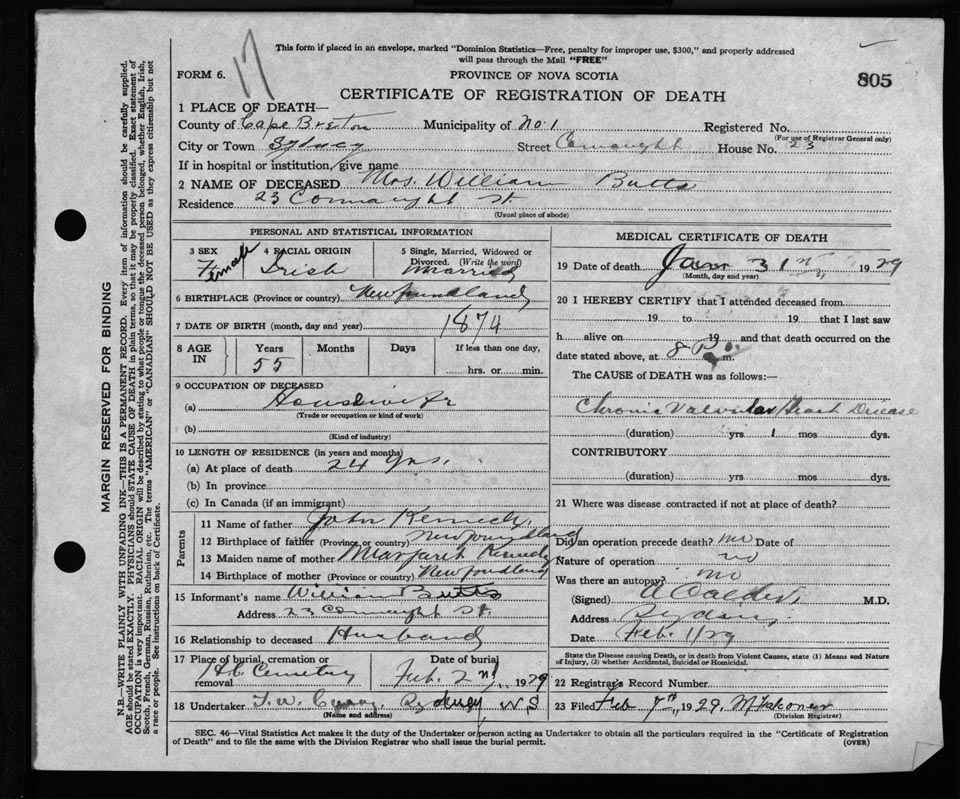 17
This form if placed in an envelope, marked "Dominion Statistics—Free, penalty for improper use, $300," and properly addressed
will pass through the Mail "FREE"
FORM 6.
PROVINCE OF NOVA SCOTIA
805
CERTIFICATE OF REGISTRATION OF DEATH
1 PLACE OF DEATH—
County of Cape Breton Municipality of No. 1 Registered No.
(For use of Registrar General only)
City or Town Sydney Street Connaught House No. 23
If in hospital or institution, give name
2 NAME OF DECEASED Mrs. William Butts
Residence 23 Connaught St
(Usual place of abode)
PERSONAL AND STATISTICAL INFORMATION
3 SEX Female
4 RACIAL ORIGIN Irish
5 Single, Married, Widowed or
Divorced. (Write the word)
Married
6 BIRTHPLACE (Province or country) Newfoundland
7 DATE OF BIRTH (month, day and year) 1874
8 AGE IN Years Months Days If less than one day,
55 hrs. or min.
9 OCCUPATION OF DECEASED
(a) Housewife
(Trade or occupation or kind of work)
(b)
(Kind of industry)
10 LENGTH OF RESIDENCE (in years and months)
(a) At place of death 24 yrs.
(b) In province
(c) In Canada (if an immigrant)
Parents
11 Name of father John Kennedy
12 Birthplace of father (Province or country) Newfoundland
13 Maiden name of mother Margaret Kennedy
14 Birthplace of mother (Province or country) Newfoundland
15 Informant's name William Butts
Address 23 Connaught St.
16 Relationship to deceased Husband
17 Place of burial, cremation or
removal Cemetery
Date of burial
Feb. 2nd, 1929
18 Undertaker T. W. Curry, Sydney N.S.
(Name and address)
MEDICAL CERTIFICATE OF DEATH
19 Date of death Jan 31 1929
(Month, day and year)
20 I HEREBY CERTIFY that I attended deceased from
19 to 19 that I last saw
h alive on 19 and that death occurred on the
date stated above, at 8 P. m.
The CAUSE of DEATH was as follows:—
Chronic Valvular Heart Disease
(duration) yrs 1 mos dys.
CONTRIBUTORY
(duration) yrs mos dys.
21 Where was disease contracted if not at place of death?
Did an operation precede death? no Date of
Nature of operation no
Was there an autopsy? no
(Signed) M.D.
Address Sydney
Date Feb. 1/29
State the Disease causing Death, or in death from Violent Causes, state (1) Means and Nature
of Injury, (2) whether Accidental, Suicidal or Homicidal.
22 Registrar's Record Number
23 Filed Feb 7th, 1929.
(Division Registrar)
SEC. 46—Vital Statistics Act makes it the duty of the Undertaker or person acting as Undertaker to obtain all the particulars required in the "Certificate of Registration
of Death" and to file the same with the Division Registrar who shall issue the burial permit.
(OVER)
MARGIN RESERVED FOR BINDING
N.B.—WRITE PLAINLY WITH UNFADING INK—THIS IS A PERMANENT RECORD. Every item of information should be carefully supplied.
AGE should be stated EXACTLY. PHYSICIANS should STATE CAUSE OF DEATH in plain terms, so that it may be properly classified. Exact statement of
OCCUPATION is very important. RACIAL ORIGIN will be described by stating to what people or tongue the deceased person belonged, whether English, Irish,
Scotch, French, German, Russian, Ruthenian, etc. The terms "AMERICAN" or "CANADIAN" SHOULD NOT BE USED as they express citizenship but not
a race or people. See instructions on back of Certificate.